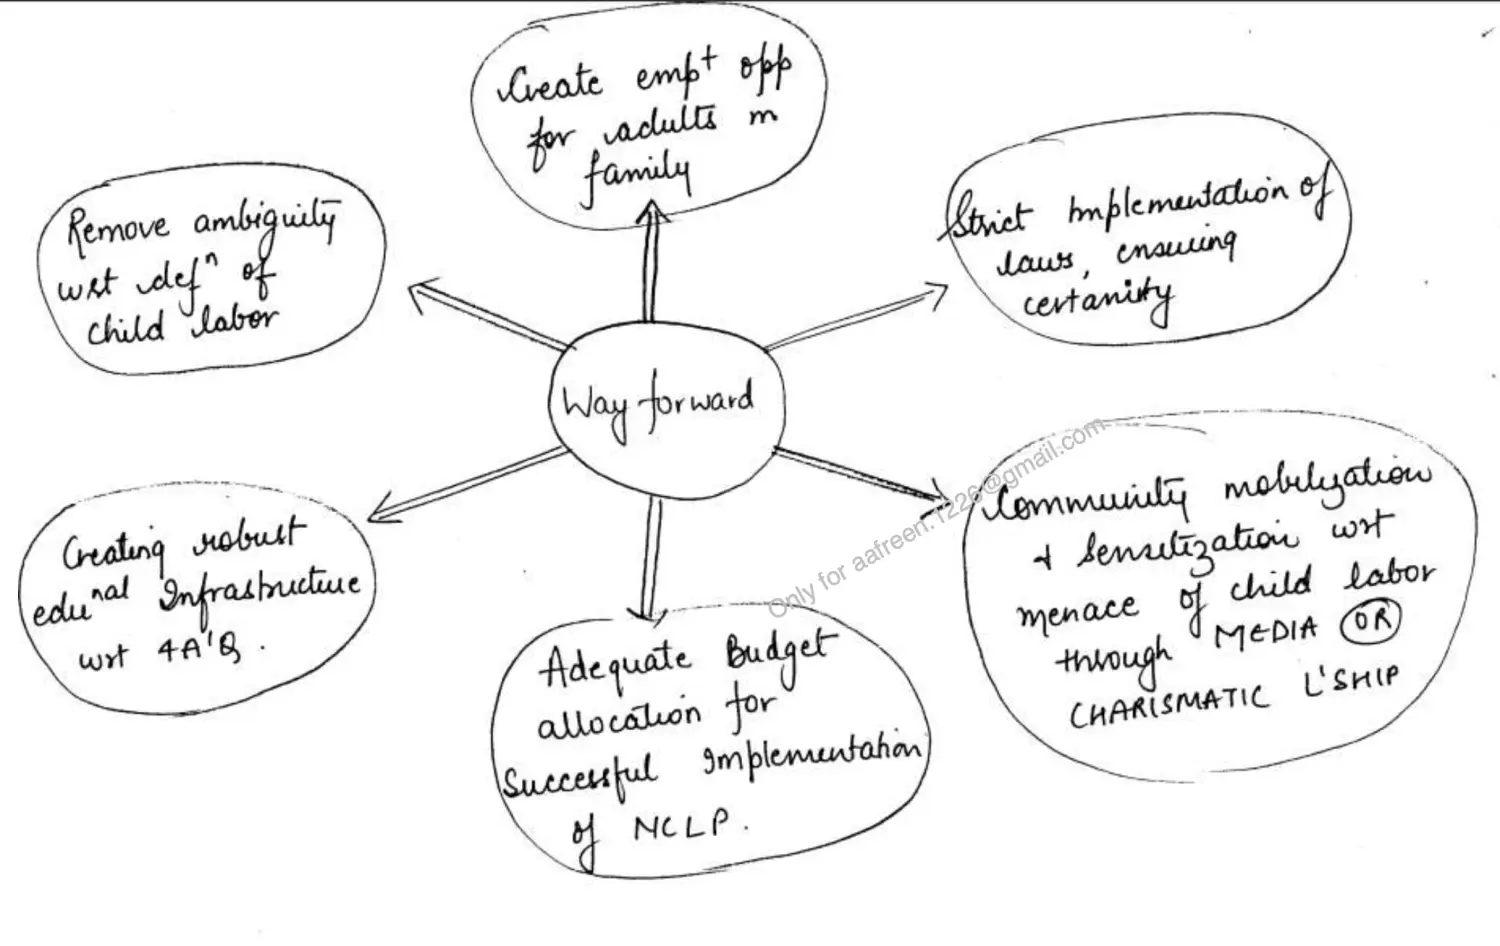 Create emp^t opp
for adults in
family
Strict Implementation of
laws, ensuring
certainity
Remove ambiguity
wrt def^n of
child labor
Way forward
Community mobilization
& Sensitization wrt
menace of child labor
through MEDIA OR
CHARISMATIC L'SHIP
Creating robust
edu^nal Infrastructure
wrt 4A'Q.
Adequate Budget
allocation for
Successful Implementation
of NCLP.
Only for aafreen.1226@gmail.com